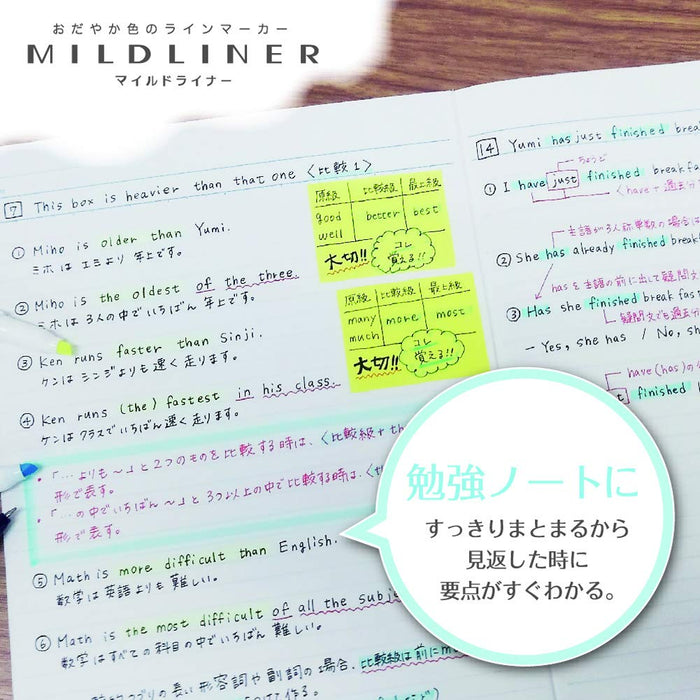 おだやか色のラインマーカー
MILDLINER
マイルドライナー
7 This box is heavier than that one 〈比較1〉
① Miho is older than Yumi.
ミホは エミより 年上です。
② Miho is the oldest of the three.
ミホは 3人の中でいちばん 年上です。
③ Ken runs faster than Sinji.
ケンは シンジよりも 速く 走ります。
④ Ken runs (the) fastest in his class.
ケンは クラスで いちばん 速く 走ります。
・「…よりも〜」と2つのものを比較する時は、〈比較級+th
形で表す。
・「…の中でいちばん〜」と3つ以上の中で比較する時は、〈th
形で表す。
⑤ Math is more difficult than English.
数学は 英語よりも 難しい。
⑥ Math is the most difficult of all the subje
数学は すべての 科目の中で いちばん 難しい。
つづりの長い形容詞や副詞の場合、比較級は前にmo
作る。
原級 比較級 最上級
good better best
well
大切!! コレ
覚える!!
原級 比較級 最上級
many more most
much
大切!! コレ
覚える!!
14 Yumi has just finished break
ちょうど
① I have just finished breakfa
〈have+過去分
主語が3人称単数の場合は
② She has already finished break
hasを主語の前に出して疑問文
③ Has she finished breakfas
疑問文でも過去分
- Yes, she has / No, she
have(has)の
finished
勉強ノートに
すっきりまとまるから
見返した時に
要点がすぐわかる。